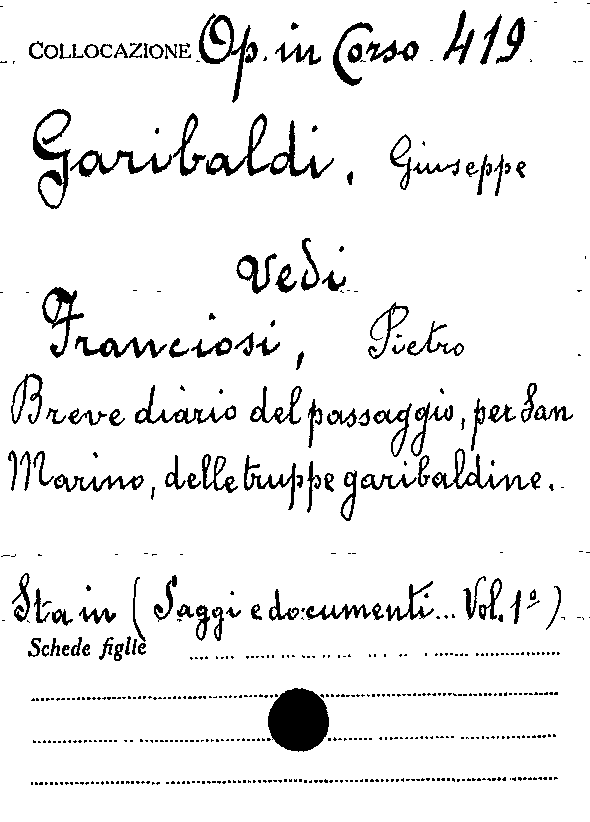 COLLOCAZIONE Op. in Corso 419
Garibaldi, Giuseppe
Vedi
Franciosi, Pietro
Breve diario del passaggio, per San
Marino, delle truppe garibaldine.
Sta in (Saggi e documenti... Vol. 1º)
Schede figlie